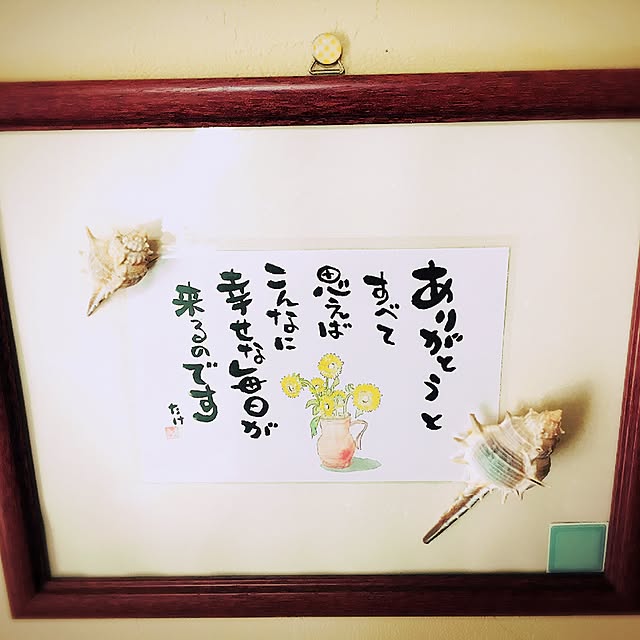 ありがとうと
すべて
思えば
こんなに
幸せな毎日が
来るのです
たけ